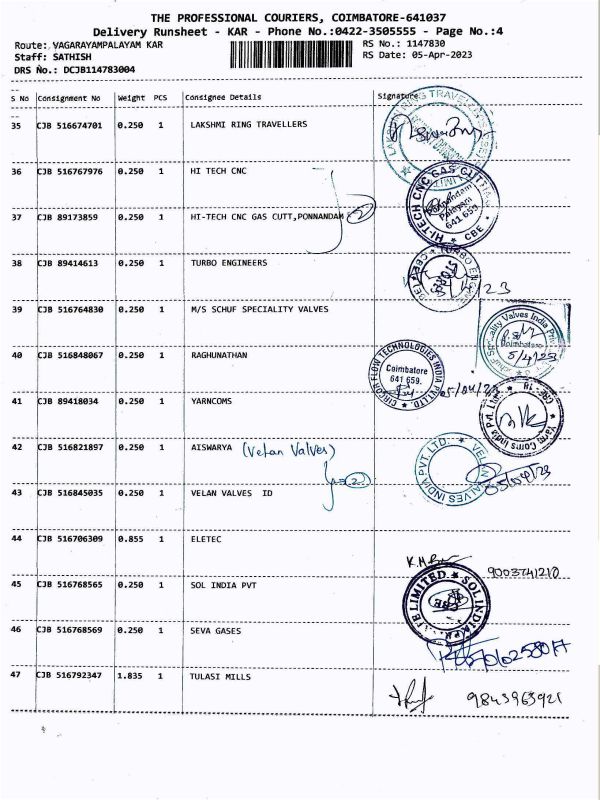 THE PROFESSIONAL COURIERS, COIMBATORE-641037
Delivery Runsheet - KAR - Phone No.:0422-3505555 - Page No.:4
Route: VAGARAYAMPALAYAM KAR RS No.: 1147830
Staff: SATHISH RS Date: 05-Apr-2023
DRS No.: DCJB114783004
S No Consignment No Weight PCS Consignee Details Signature
35 CJB 516674701 0.250 1 LAKSHMI RING TRAVELLERS
36 CJB 516767976 0.250 1 HI TECH CNC
HI-TECH CNC GAS CUTT
Ponnandam
Palayam
641 659.
CBE
37 CJB 89173859 0.250 1 HI-TECH CNC GAS CUTT,PONNANDAM 2
38 CJB 89414613 0.250 1 TURBO ENGINEERS
STORES
39 CJB 516764830 0.250 1 M/S SCHUF SPECIALITY VALVES
Speciality Valves India
Coimbatore
5/4/23
40 CJB 516848067 0.250 1 RAGHUNATHAN
CIRCOR FLOW TECHNOLOGIES INDIA PVT.LTD.
Coimbatore
641 659.
05/04/23
41 CJB 89418034 0.250 1 YARNCOMS
Yarn Coms India Pvt. Ltd.
42 CJB 516821897 0.250 1 AISWARYA (Velan Valves)
VELAN VALVES INDIA PVT LTD.
=2
05/04/23
43 CJB 516845035 0.250 1 VELAN VALVES ID
44 CJB 516706309 0.855 1 ELETEC
9003741210
45 CJB 516768565 0.250 1 SOL INDIA PVT
SOL INDIA
LIMITED
CBE
46 CJB 516768569 0.250 1 SEVA GASES
47 CJB 516792347 1.835 1 TULASI MILLS
9843963921